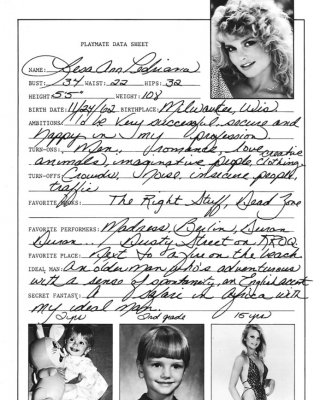 PLAYMATE DATA SHEET
NAME: Lesa Ann Pedriana
BUST: 34 WAIST: 22 HIPS: 32
HEIGHT: 5'5" WEIGHT: 104
BIRTH DATE: 11/24/62 BIRTHPLACE: Milwaukee, Wis
AMBITIONS: I'd be very successful, secure and
happy in my profession.
TURN-ONS: Men, romance, love, creative
animals, imaginative people, clothing
TURN-OFFS: Crowds, noise, insecure people,
traffic
FAVORITE The Right Stuff, Dead Zone
FAVORITE PERFORMERS: Madness, Berlin, Duran
Duran... Dusty Street on KROQ
FAVORITE PLACE: Next to a fire on the beach
IDEAL MAN: An older man who's adventurous
with a sense of spontaneity, an English accent
SECRET FANTASY: A safari in Africa with
my ideal man.
2 yrs 2nd grade 15 yrs